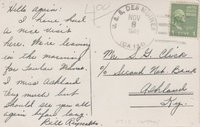 Hello Again:
I have had
a nice visit
here. We're leaving
in the morning
for
I miss Ashland
very much but
should see you all
again before long.
Bill
U.S.S. DES MOINES
NOV
8
Mr. S. G. Clink
c/o Second Nat. Bank
Ashland
Ky.